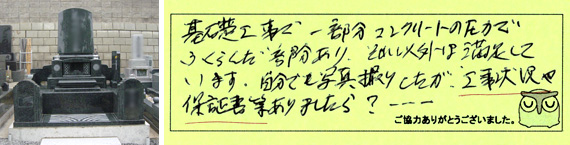 基礎工事で一部分コンクリートの圧力で
ふくらんだ部分あり、それ以外は満足して
います。自分でも写真撮りしたが、工事状況や
保証書等ありましたら？ーーー
ご協力ありがとうございました。